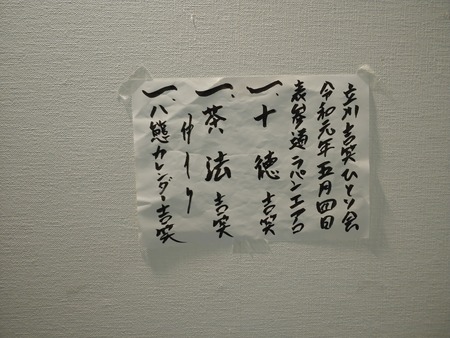 立川吉笑ひとり会
令和元年五月四日
表参道ラパンエアロ
一、十徳 吉笑
一、茶法 吉笑
仲入り
一、八態カレンダー 吉笑